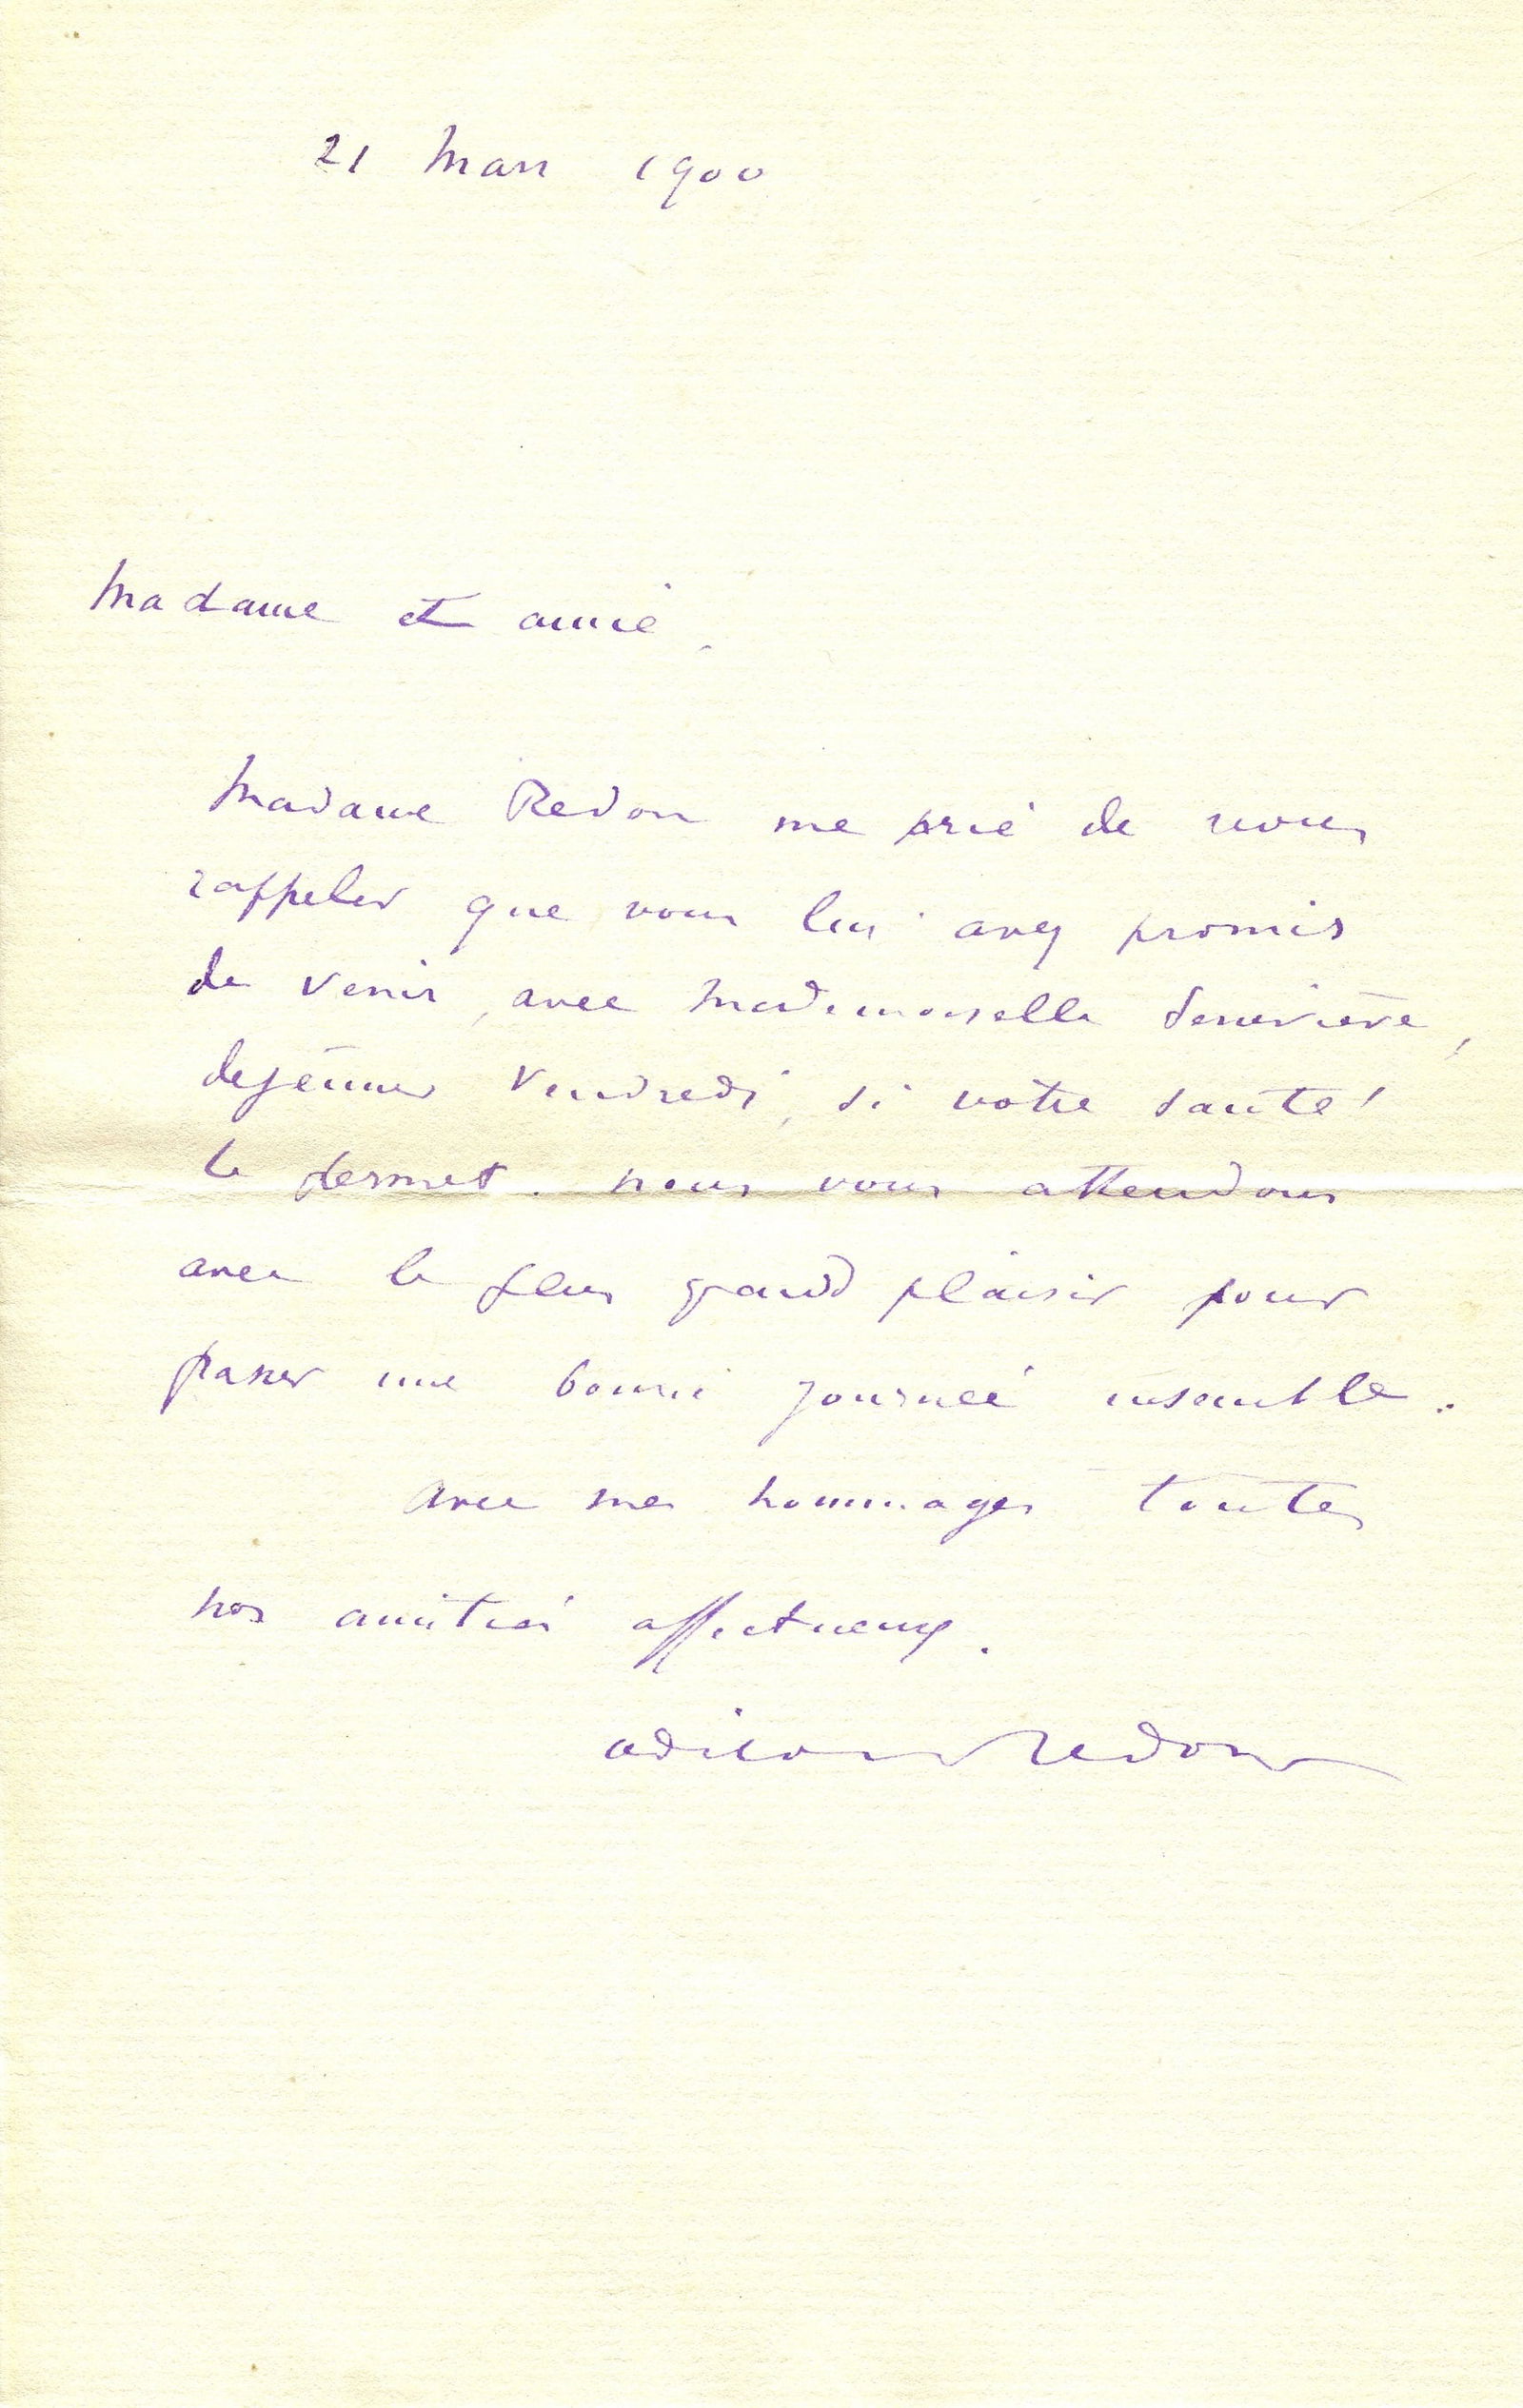 21 Mars 1900
Madame et amie,
Madame Redon me prie de vous
rappeler que vous lui avez promis
de venir, avec Mademoiselle Geneviève,
dejeuner Vendredi, si votre santé
le permet. nous vous attendons
avec le plus grand plaisir pour
passer une bonne journée ensemble.
avec mes hommages toutes
nos amitiés affectueuses.
odilon Redon